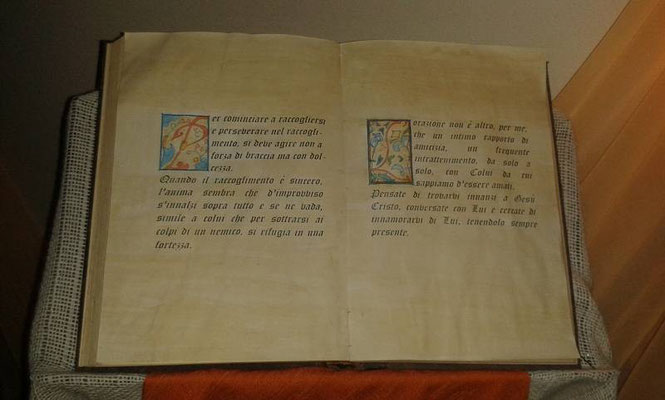 Per cominciare a raccogliersi
e perseverare nel raccogli-
mento, si deve agire non a
forza di braccia ma con dol-
cezza.
Quando il raccoglimento è sincero,
l'anima sembra che d'improvviso
s'innalzi sopra tutto e se ne vada,
simile a colui che per sottrarsi ai
colpi di un nemico, si rifugia in una
fortezza.
L'orazione non è altro, per me,
che un intimo rapporto di
amicizia, un frequente
intrattenimento, da solo a
solo, con Colui da cui
sappiamo d'essere amati.
Pensate di trovarvi innanzi a Gesù
Cristo, conversate con Lui e cercate di
innamorarvi di Lui, tenendolo sempre
presente.